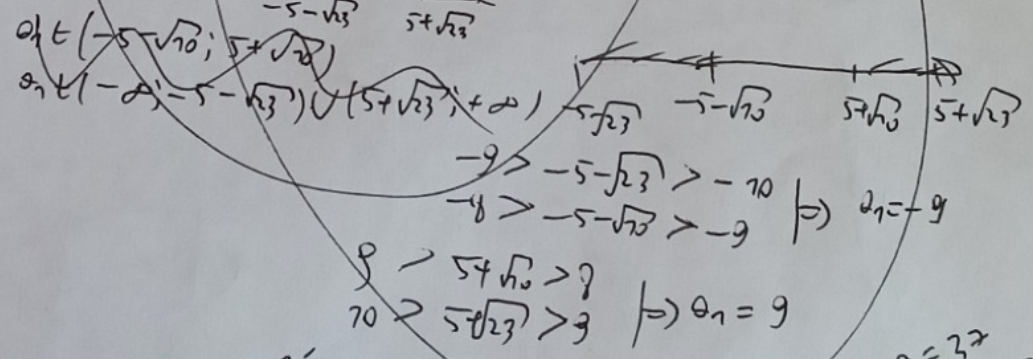 -5-√23 5+√23
a₁ ∈ (-5-√10; 5+√10)
a₁ ∈ (-∞; -5-√23) ∪ (5+√23; +∞)
-5-√23 -5-√10 5+√10 5+√23
-9 > -5-√23 > -10
-8 > -5-√10 > -9 |⇒ a₁ = -9
9 > 5+√10 > 8
10 > 5+√23 > 9 |⇒ a₁ = 9
= 37